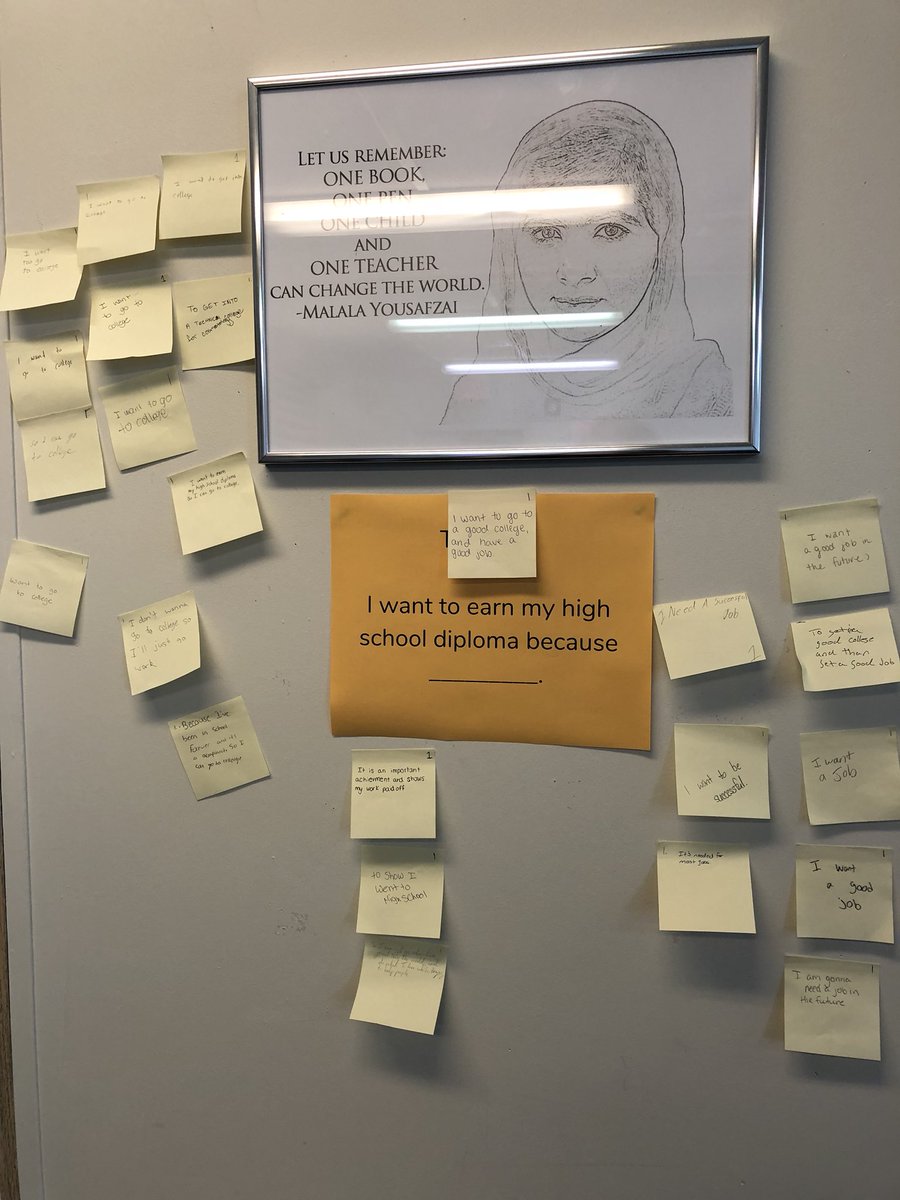 LET US REMEMBER:
ONE BOOK,
ONE PEN
ONE CHILD
AND
ONE TEACHER
CAN CHANGE THE WORLD.
-MALALA YOUSAFZAI
I want to go to
college
1
I want to get into
college
I want
too go
to college
1
I want
to go to
college
TO GET INTO
A TECHNICAL college
for
1
I want to
go to college
I want to go
to college
so I can go
to college
I want to earn
my high school diploma
so I can go to college.
want to go
to college
I don't wanna
go to college so
I'll just go
work
1. Because I've
been in school
Forever and it's
a so I
can go to college
1
I want to go to
a good college,
and have a
good job.
T
I want to earn my high
school diploma because
__________.
1
It is an important
achievment and shows
my work paid off
1
to Show I
Went to
High School
I want
a good job in
the future:)
I Need A Successful
Job
1
To get in
good college
and than
get a good Job
1
I want to be
successful.
1
I want
a Job
1.
It's needed for
most jobs
1
I want
a good
job
1
I am gonna
need a job in
the future